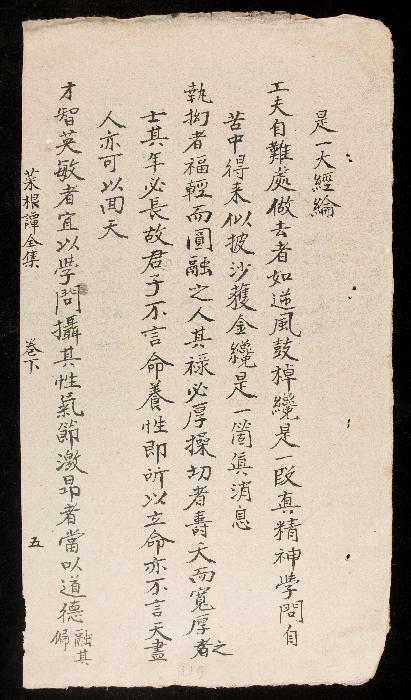 是一大經綸
工夫自難處做去者如逆風鼓棹纔是一段真精神學問自
苦中得来似披沙獲金纔是一箇真消息
執拗者福輕而圓融之人其祿必厚操切者壽夭而寬厚者之
士其年必長故君子不言命養性即所以立命亦不言天盡
人亦可以回天
才智英敏者宜以學問攝其性氣節激昂者當以道德融其
偏
菜根譚全集 卷下 五